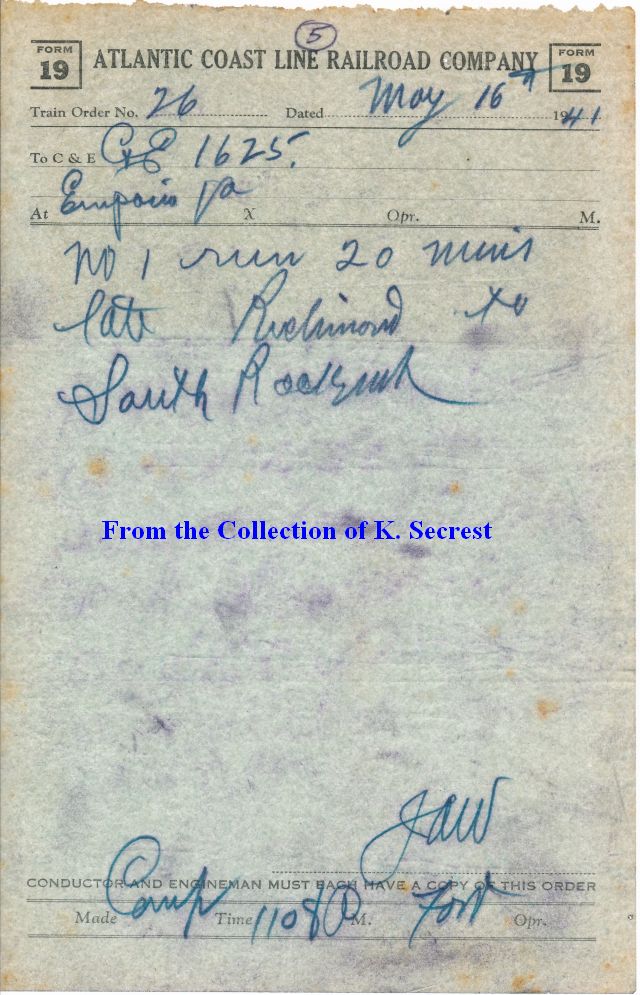 5
FORM 19 ATLANTIC COAST LINE RAILROAD COMPANY FORM 19
Train Order No. 26 Dated May 16th 1941
To C & E C&E 1625.
At Emporia Va X Opr. M.
No 1 run 20 mins
late Richmond to
South Rocky
From the Collection of K. Secrest
JAW
CONDUCTOR AND ENGINEMAN MUST EACH HAVE A COPY OF THIS ORDER
Made Comp Time 1108 P M. Opr.